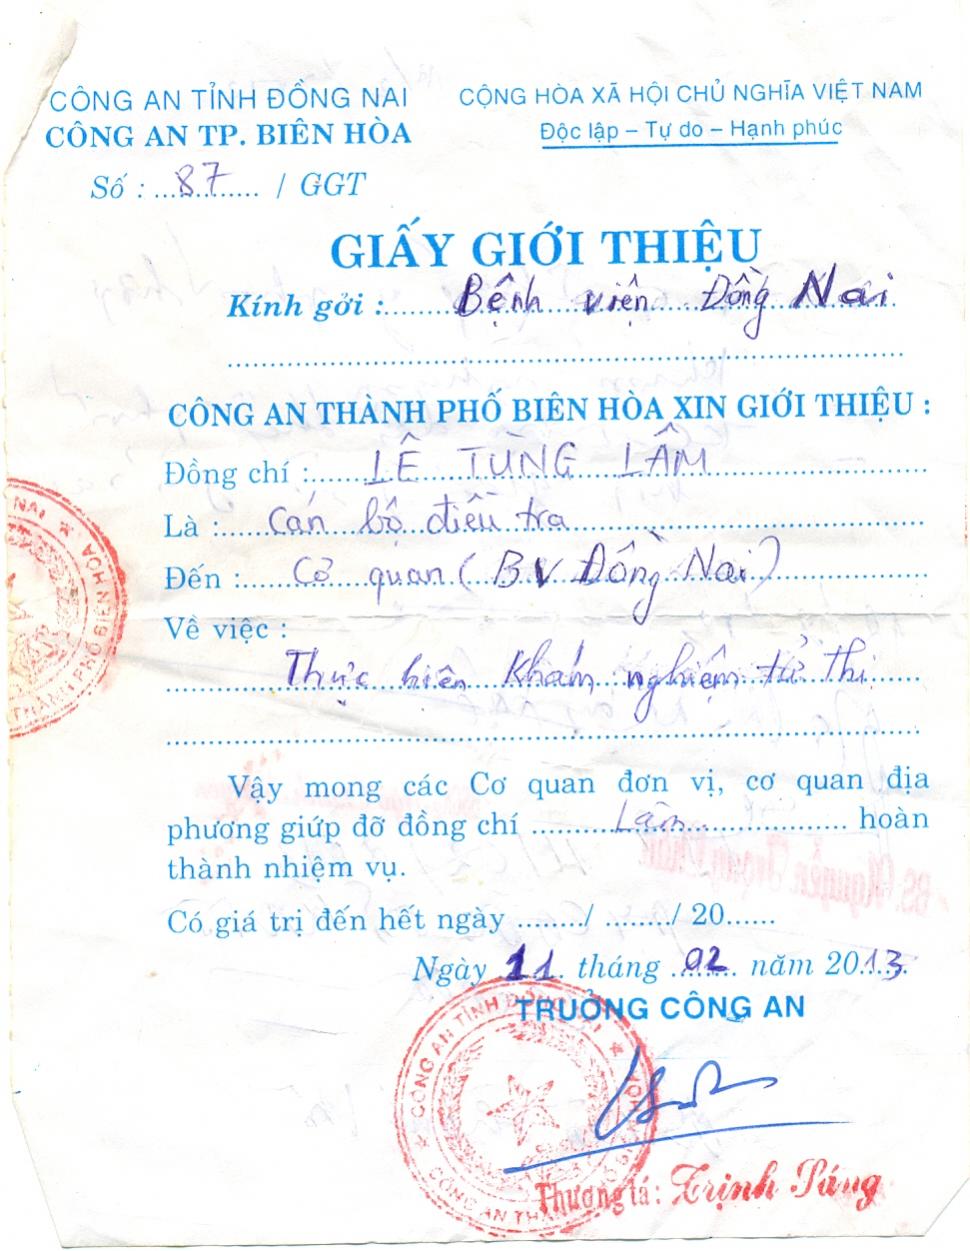 CÔNG AN TỈNH ĐỒNG NAI
CÔNG AN TP. BIÊN HÒA
Số : ...87... / GGT
CỘNG HÒA XÃ HỘI CHỦ NGHĨA VIỆT NAM
Độc lập – Tự do – Hạnh phúc
GIẤY GIỚI THIỆU
Kính gởi : Bệnh viện Đồng Nai
CÔNG AN THÀNH PHỐ BIÊN HÒA XIN GIỚI THIỆU :
Đồng chí : LÊ TÙNG LÂM
Là : Cán bộ điều tra
Đến : Cơ quan (BV Đồng Nai)
Về việc :
Thực hiện Khám nghiệm tử thi
Vậy mong các Cơ quan đơn vị, cơ quan địa
phương giúp đỡ đồng chí Lâm hoàn
thành nhiệm vụ.
Có giá trị đến hết ngày ......../ ......./ 20......
Ngày 11 tháng 02 năm 2013
TRƯỞNG CÔNG AN
CÔNG AN TỈNH ĐỒNG NAI
Thượng tá: Trịnh Páng